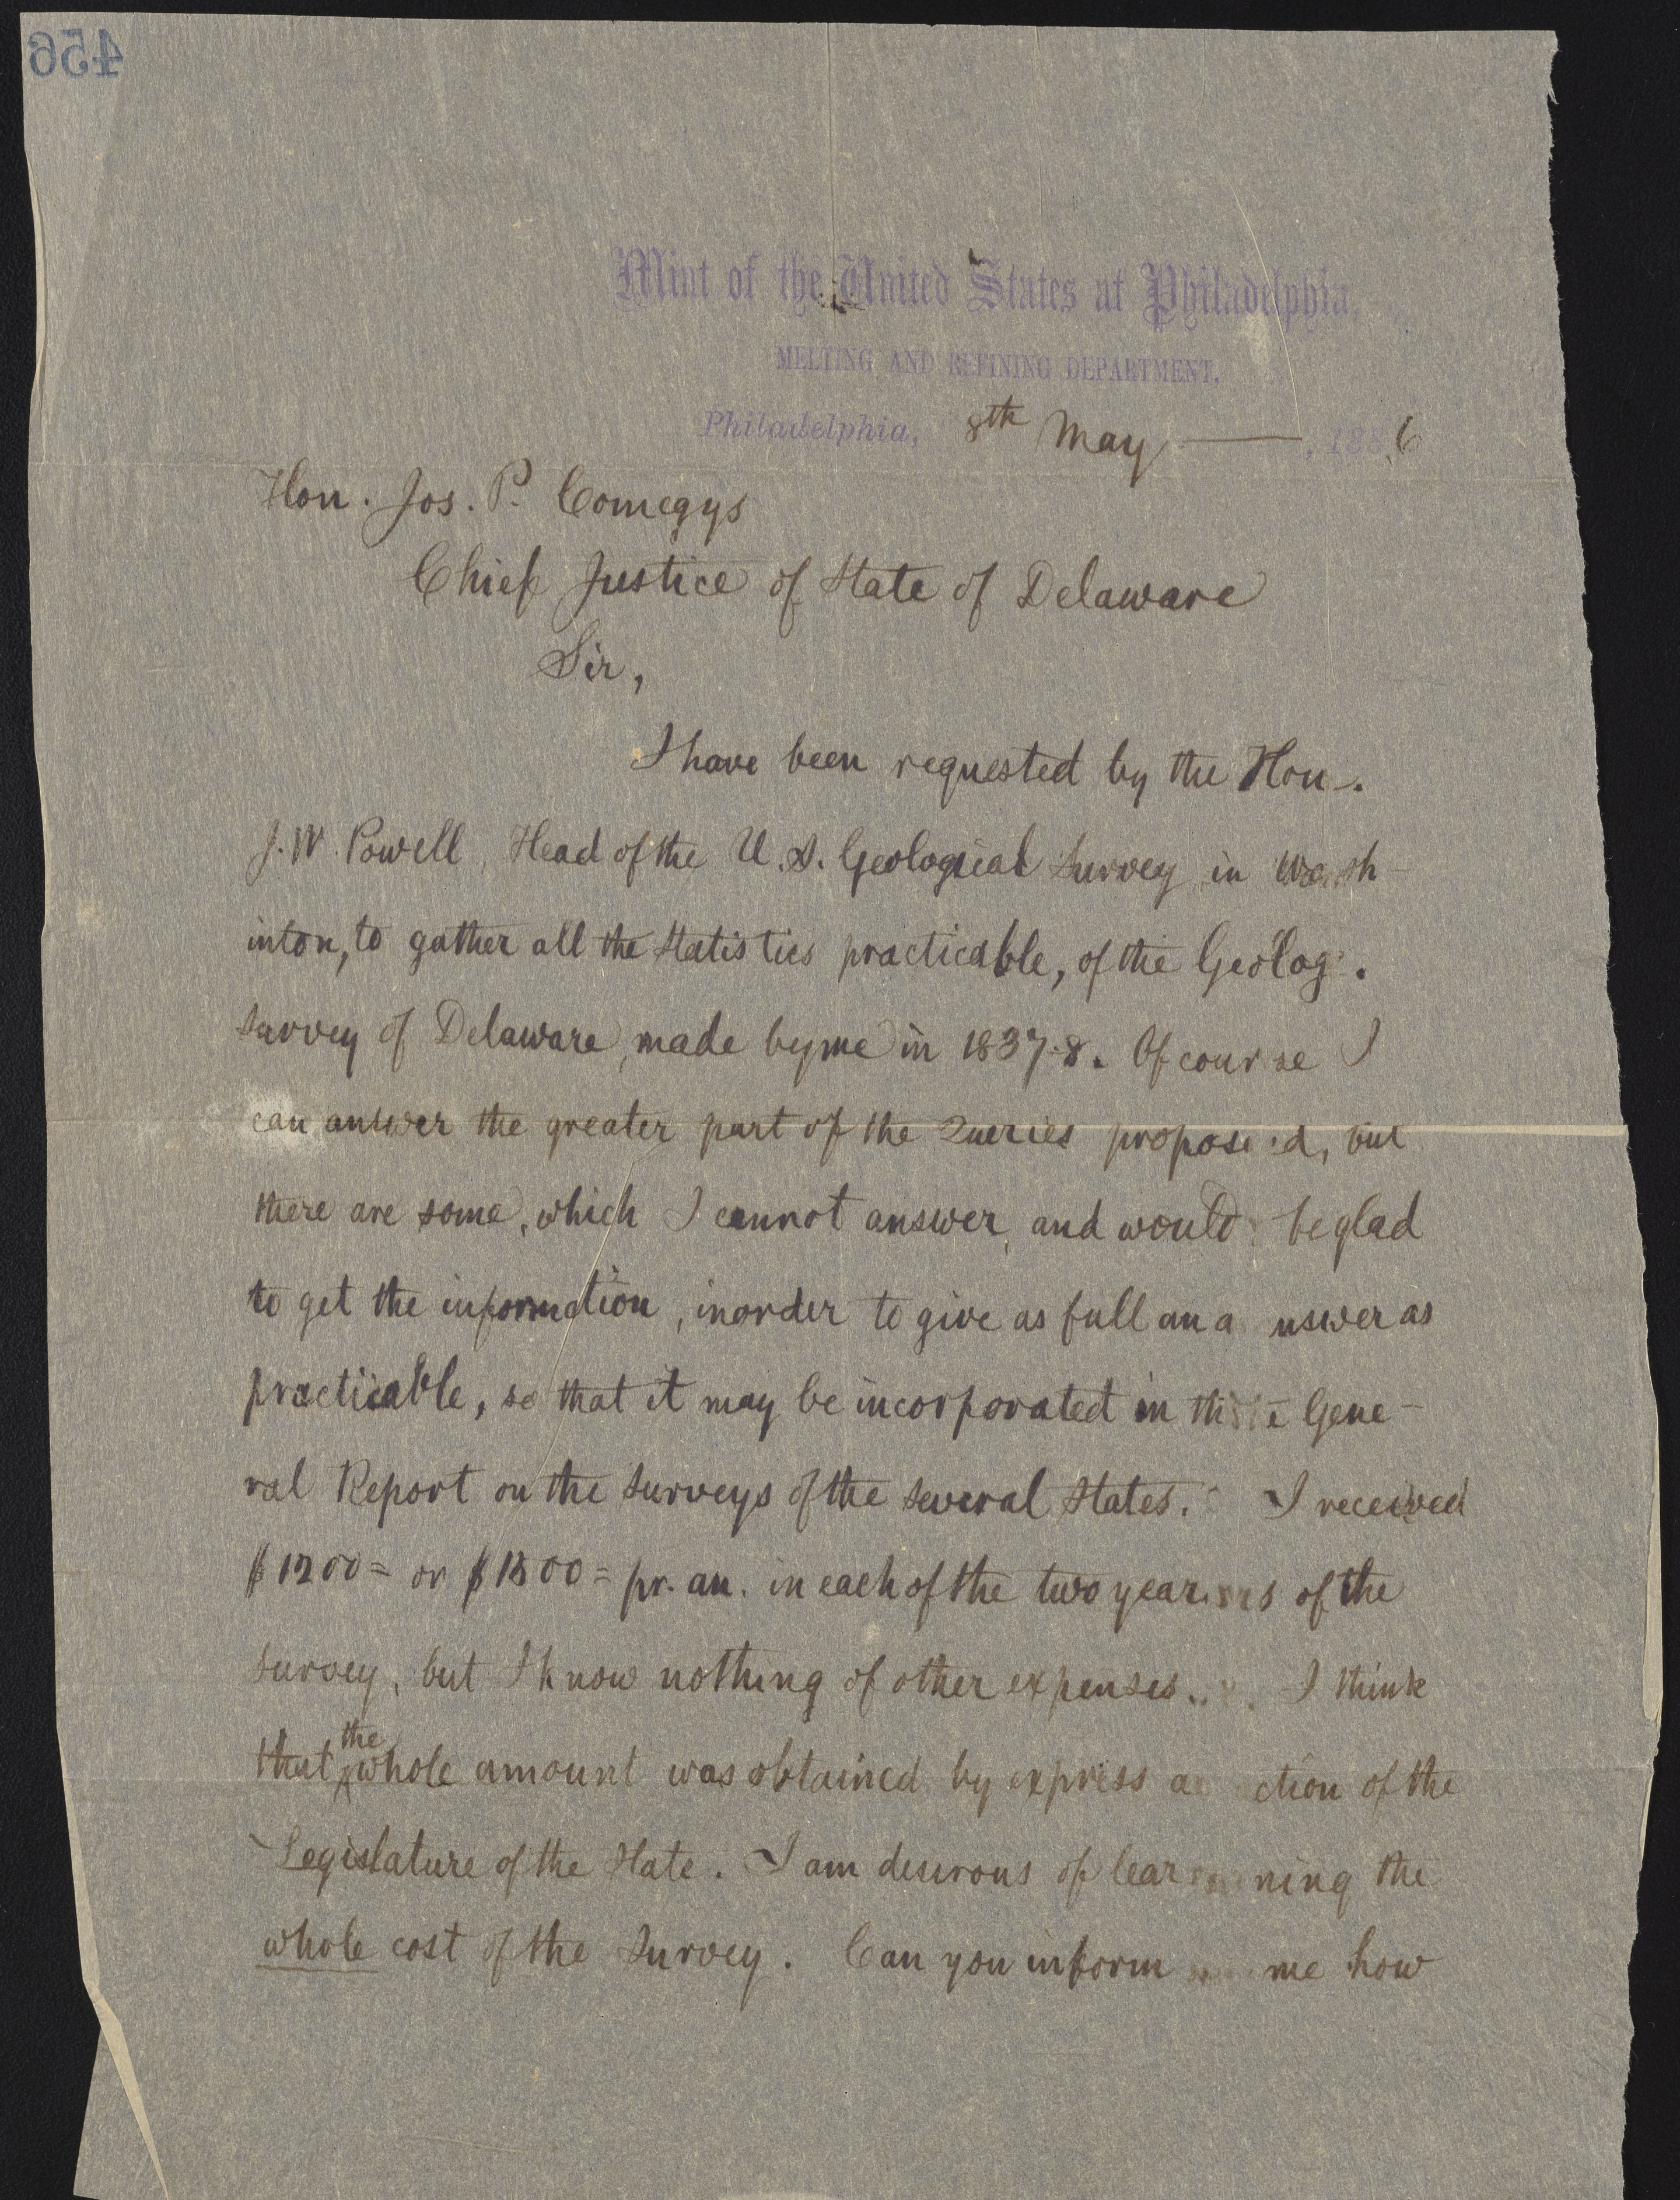 456
Mint of the United States at Philadelphia,
MELTING AND REFINING DEPARTMENT.
Philadelphia, 8th May —, 1886
Hon. Jos. P. Comegys
Chief Justice of State of Delaware
Sir,
I have been requested by the Hon.
J. W. Powell, Head of the U. S. Geological Survey in Wash-
inton, to gather all the statistics practicable, of the Geolog.
survey of Delaware, made by me in 1837-8. Of course I
can answer the greater part of the Queries proposed, but
there are some, which I cannot answer, and would be glad
to get the information, in order to give as full an answer as
practicable, so that it may be incorporated in the Gene-
ral Report on the surveys of the several States. I received
$1200= or $1500= pr. an. in each of the two years of the
survey, but I know nothing of other expenses. I think
that the whole amount was obtained by express action of the
Legislature of the State. I am desirous of learning the
whole cost of the survey. Can you inform me how